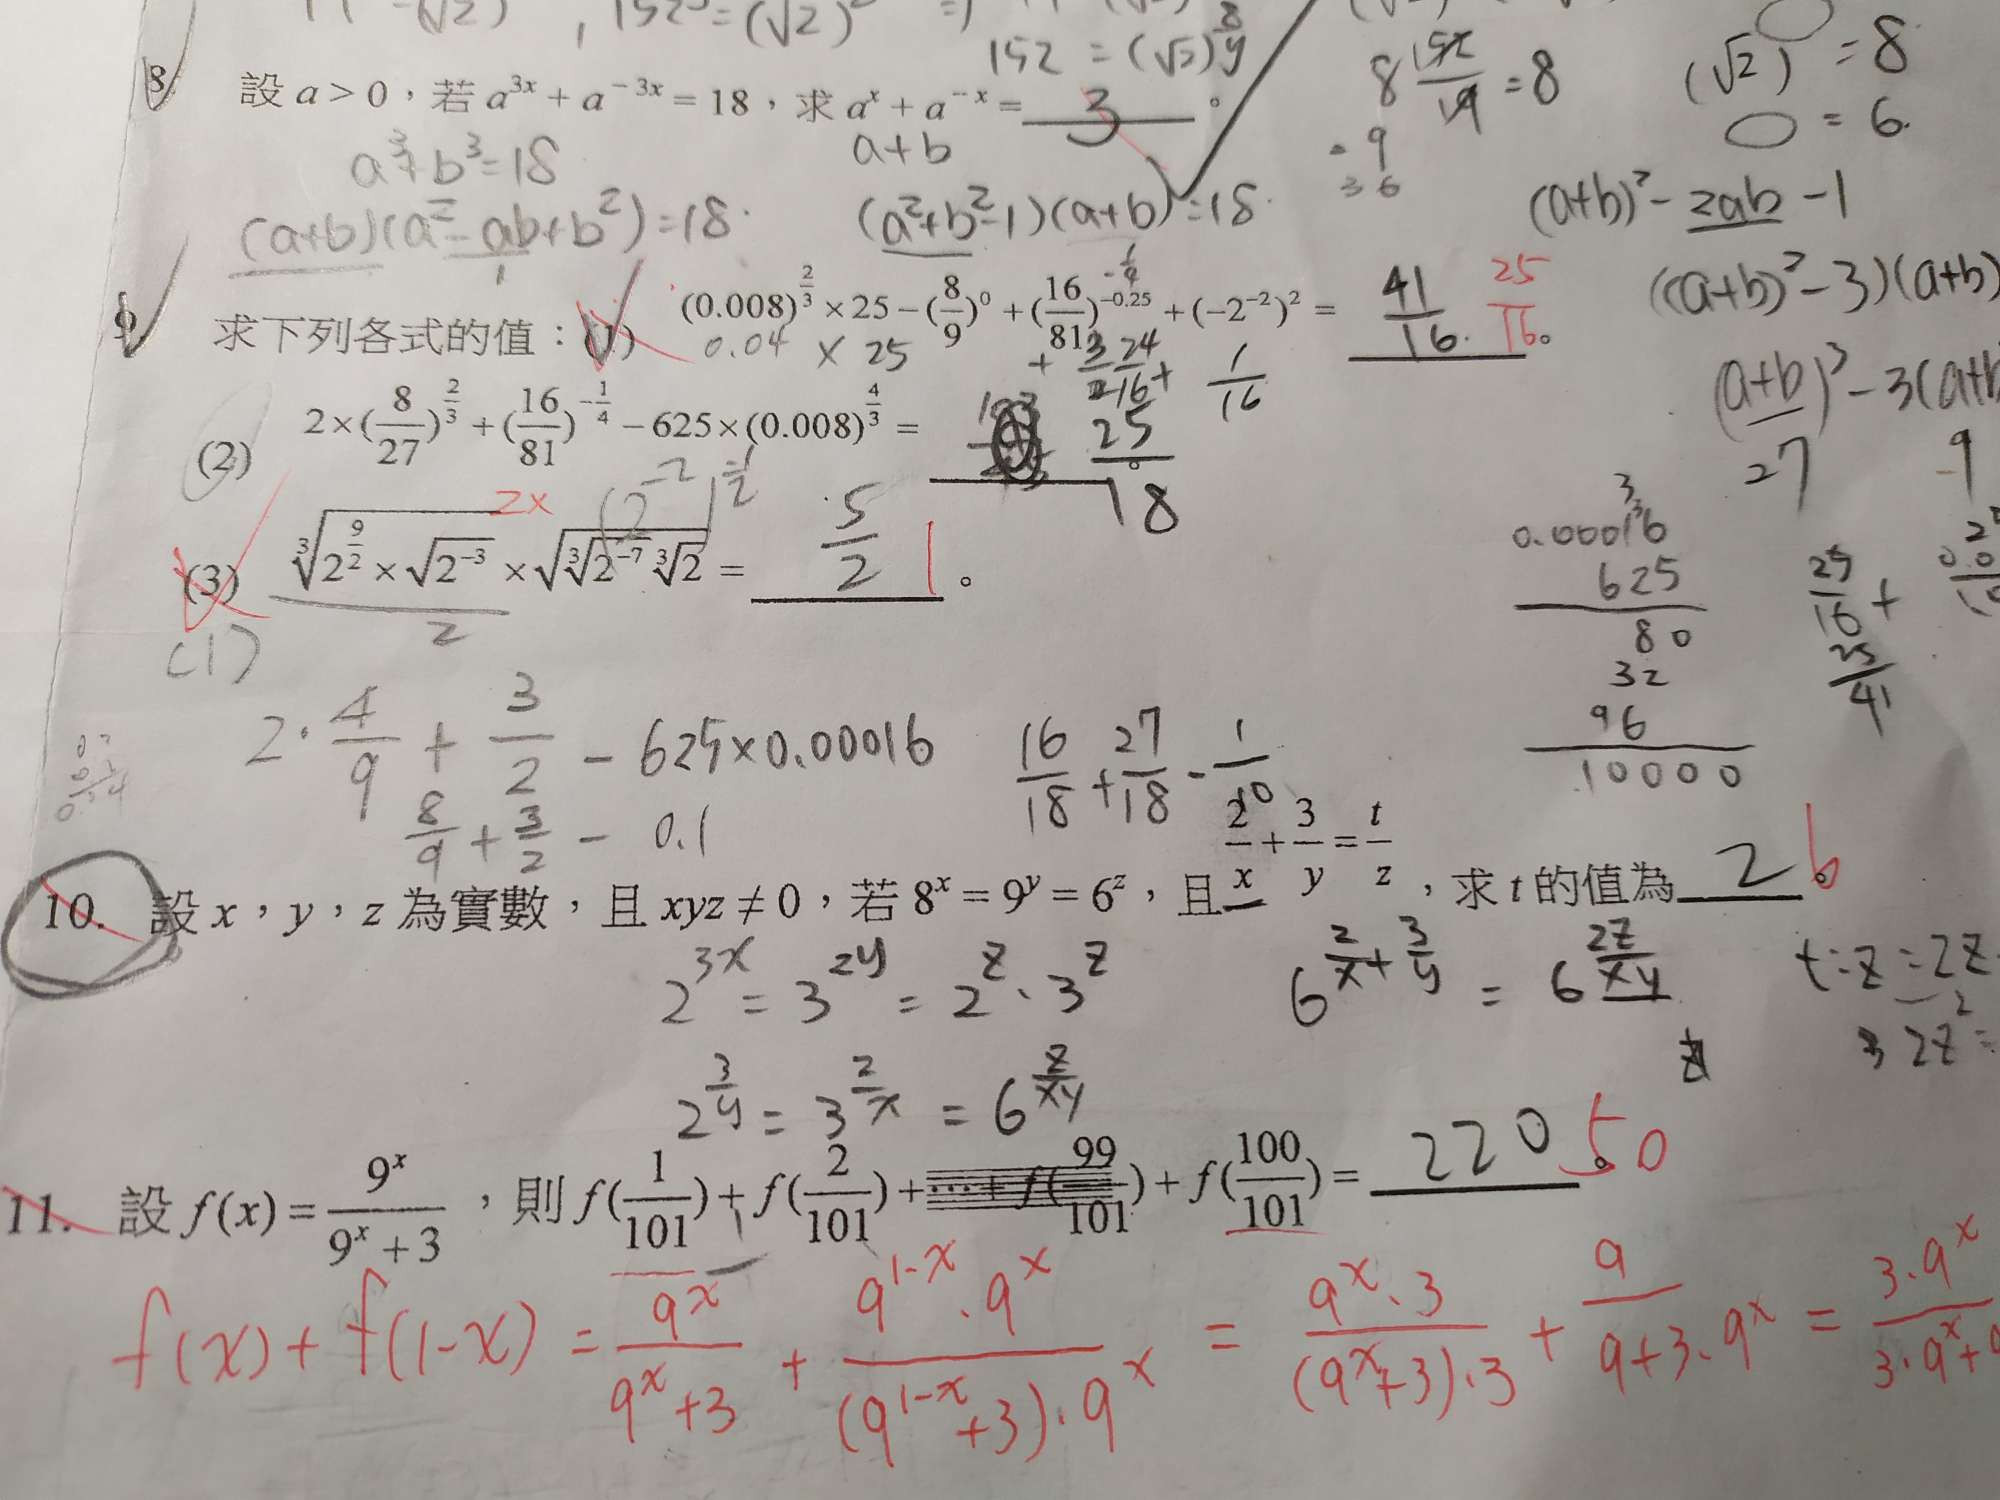 152 = (√2)^(8/y)
8^(15x/19) = 8
(√2)^○ = 8
○ = 6.
8. 設 a > 0，若 a^(3x) + a^(-3x) = 18，求 a^x + a^(-x) = 3。
a³+b³=18
a+b
= 9
36
(a+b)(a²-ab+b²)=18.
1
(a²+b²-1)(a+b)=18.
(a+b)²-2ab-1
((a+b)²-3)(a+b)
(a+b)³-3(a+b
27 9
9. 求下列各式的值：(1) (0.008)^(2/3) × 25 − (8/9)^0 + (16/81)^(-0.25) + (−2^(-2))² = 41/16. 25/16。
0.04 × 25 + 3/2 24/16 + 1/16
(2) 2×(8/27)^(2/3) + (16/81)^(-1/4) − 625×(0.008)^(4/3) = 25/18。
2x
(3) ∛(2^(9/2) × √(2^(-3))) × √(∛(2^(-7)) ∛2) = 5/2 1。
2
(1)
0.00016
625
80
32
96
10000
25/16 +
25/41
2·4/9 + 3/2 − 625×0.00016
16/18 + 27/18 − 1/10
8/9 + 3/2 − 0.1
10. 設 x，y，z 為實數，且 xyz ≠ 0，若 8^x = 9^y = 6^z，且 2/x + 3/y = t/z，求 t 的值為 2 6。
2^(3x) = 3^(2y) = 2^z · 3^z
6^(2/x + 3/y) = 6^(2z/xy)
t:z = 2z
2^(3/y) = 3^(2/x) = 6^(z/xy)
11. 設 f(x) = 9^x/(9^x + 3)，則 f(1/101) + f(2/101) + ⋯ + f(99/101) + f(100/101) = 220 50。
f(x) + f(1-x) = 9^x/(9^x+3) + 9^(1-x)·9^x/(9^(1-x)+3)·9^x = 9^x·3/(9^x+3)·3 + 9/(9+3·9^x) = 3·9^x/3·9^x+9